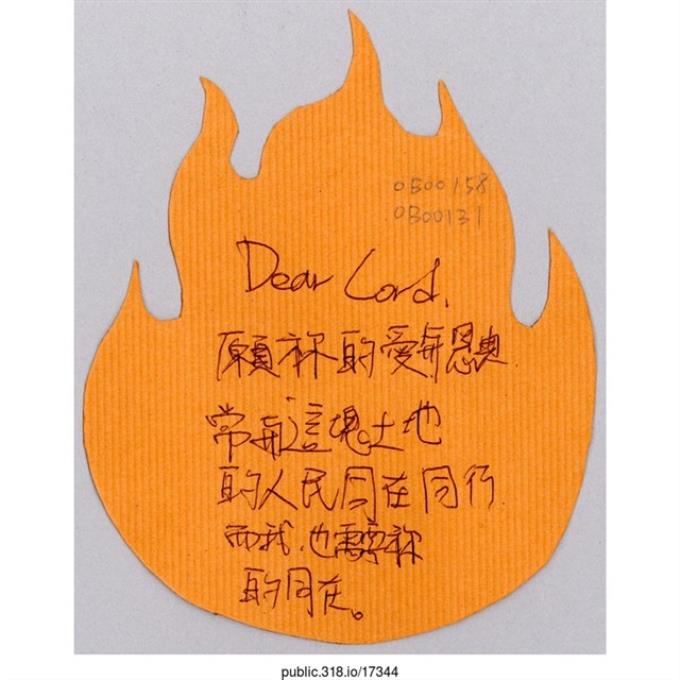 0B00158
0B00131
Dear Lord,
願祢的愛與恩典
常與這塊土地
的人民同在同行
而我,也需要祢
的同在。
public.318.io/17344